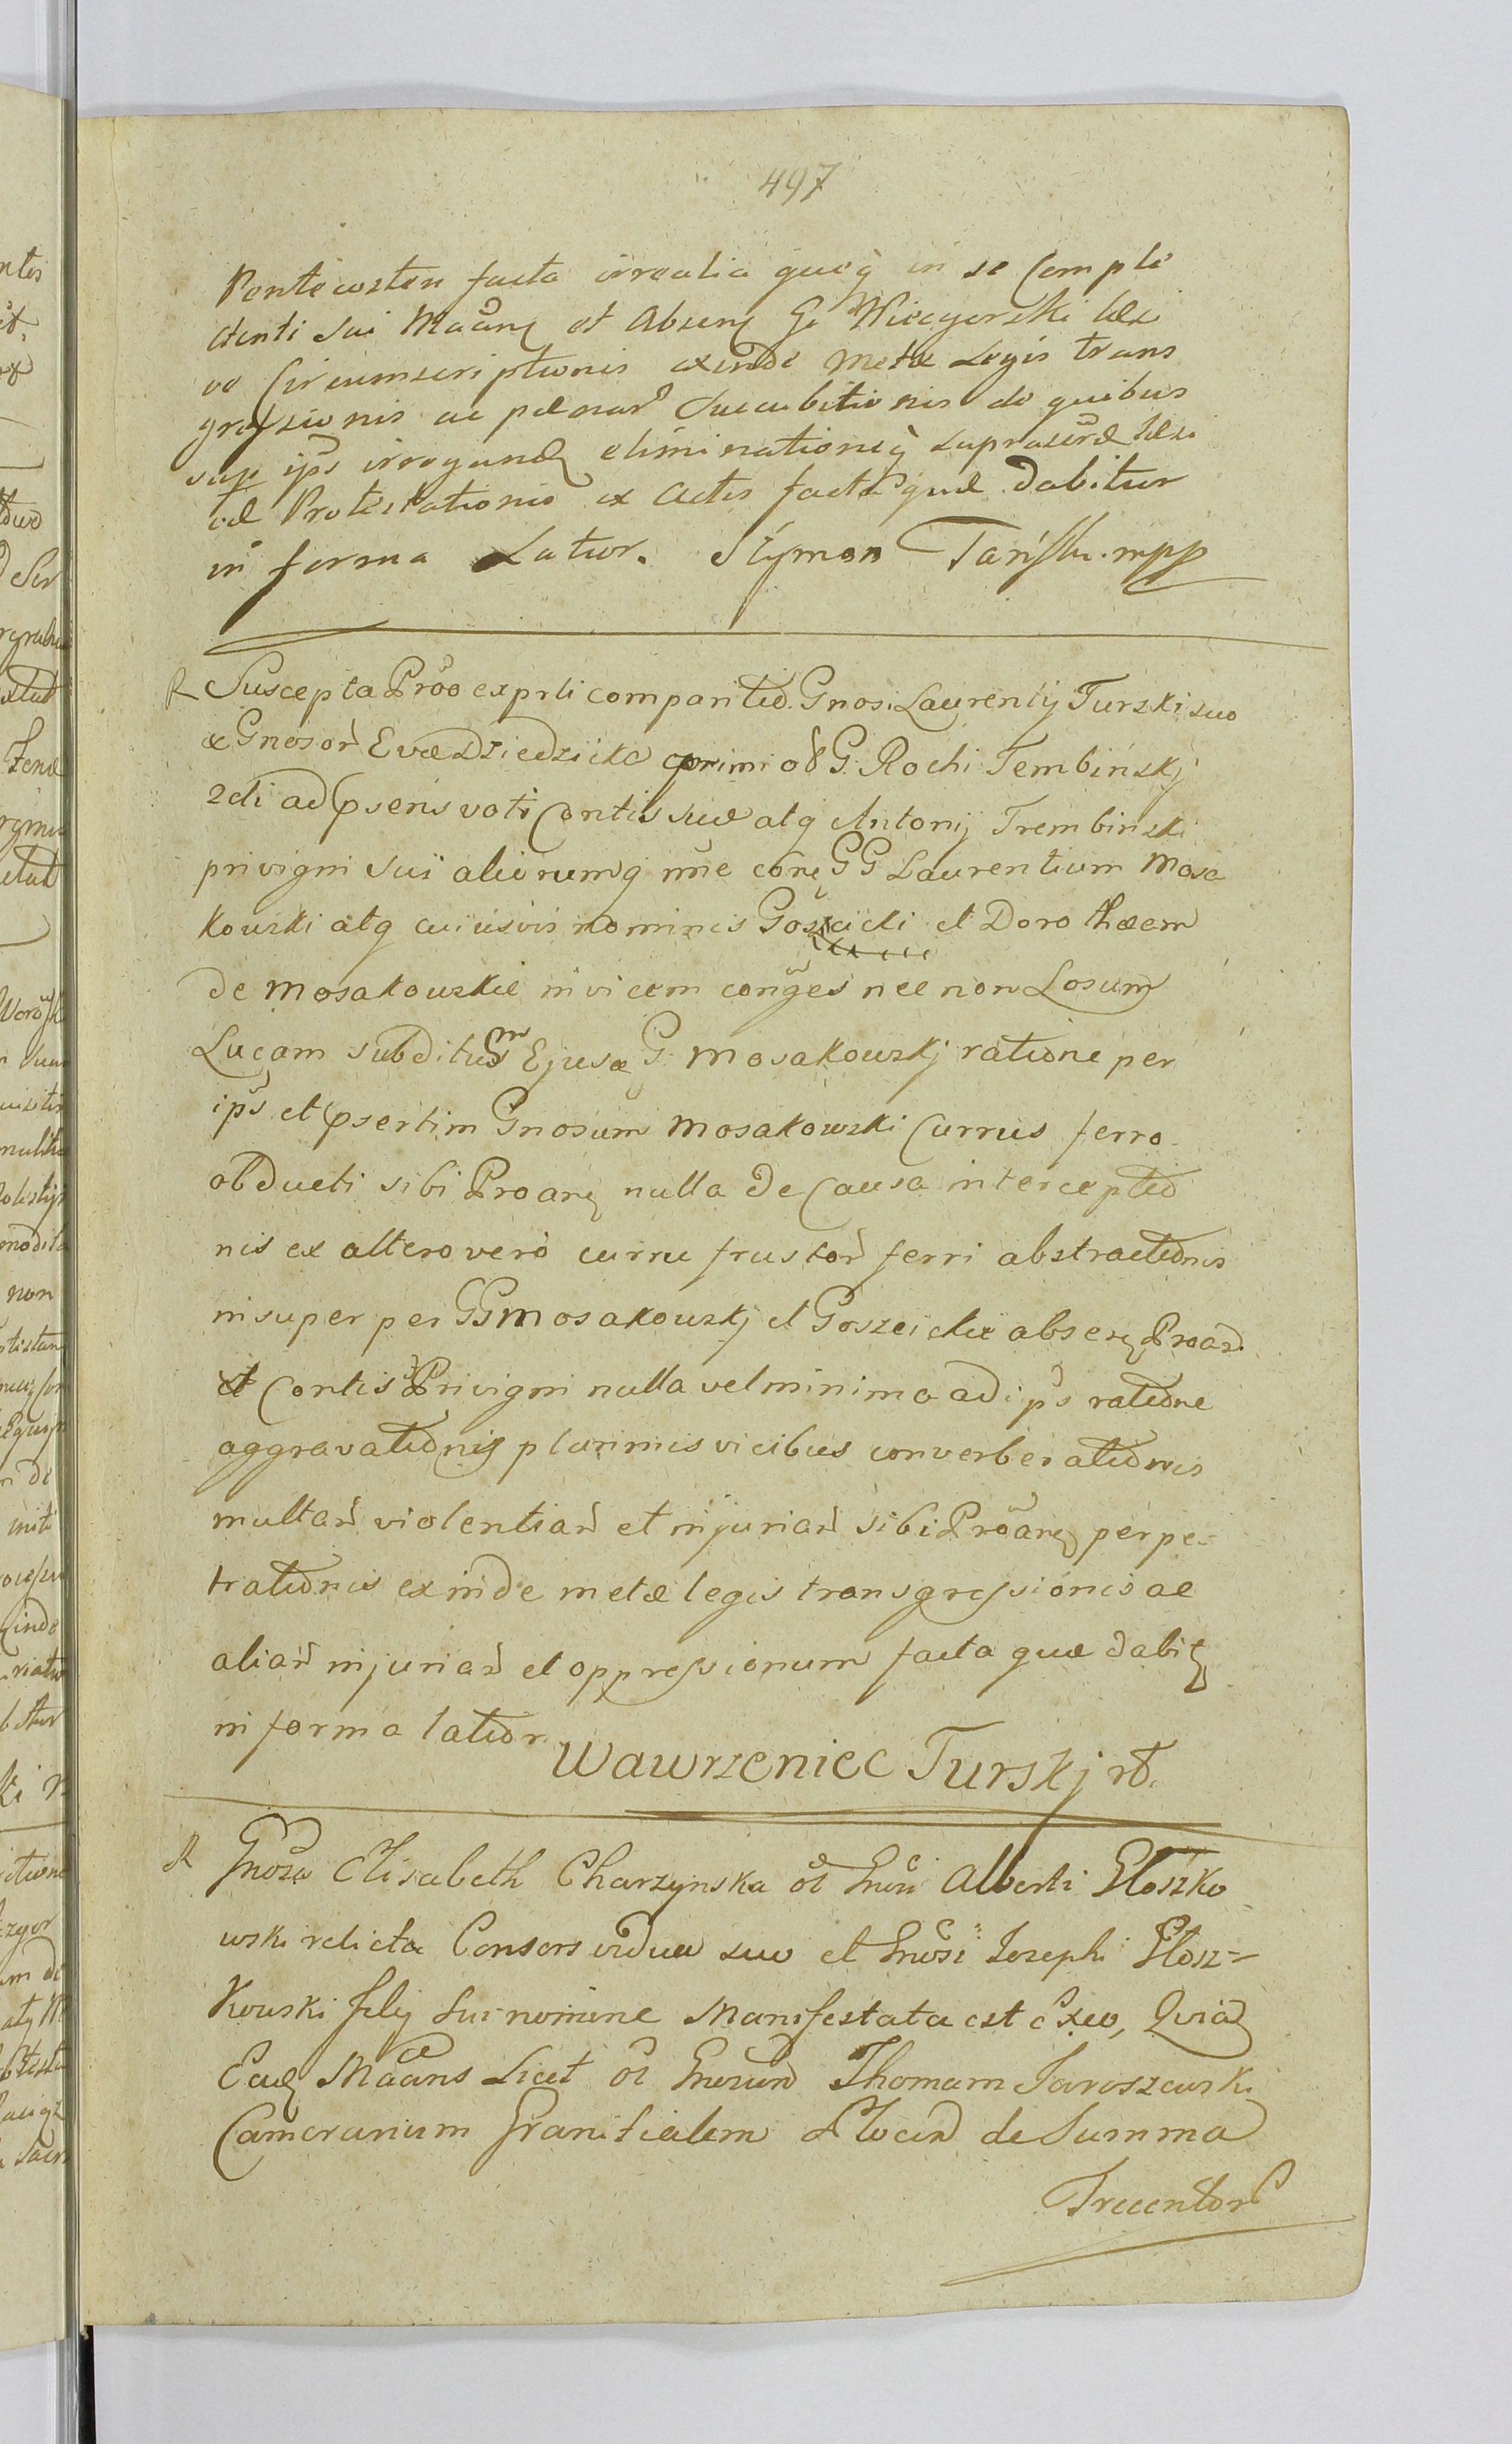 497
Pentecosten facta irrealia queq in se Comple
ctenti sui Maan et Absen G. Wiczgorski læs
væ Circumscriptionis exinde Metæ Legis trans
gressionis ac pænar Succubitionis de quibus
sup ips irrogand eliminationeq supraser læs
væ Protestationis ex Actis facta quæ dabitur
in forma Latior. Szymon Tański. mpp
R Suscepta Proo exprli comparitio. Gnosi Laurentij Turski suo
æ Gnosor Evæ Dziedzicka primi ol G. Rochi Tembinskj
2di ad psens voti Contis suæ atq Antonij Trembinski
privigni sui aliorumq nne conę GG Laurentium Mosa
kowski atq cuiusvis nominis Goscicki et Dorotheam
de Mosakowskie invicem conges nec non Losum
Lucam subditum Ejusd G. Mosakowskj ratione per
ips et psertim Gnosum Mosakowski Currus ferro
obducti sibi Proanę nulla de Causa interceptio
nis ex altero vero curru frustor ferri abstractionis
insuper per GG Mosakowskj et Goszcickie absenę Proan.
et Contis Privigni nulla vel minima ad ips ratione
aggravationis plurimis vicibus converberationis
multar violentiar et injuriar sibi Proanę perpe-
trationis exinde metæ legis transgressionis ac
aliar injuriar et oppressionum facta quæ dabit
in forma latior
Wawrzeniec Turskj rd.
R Gnosa Elisabeth Charzynska ol Gnosi Alberti Głoszko
wski relicta Consors vidua suo et Gnosi Josephi Głosz=
kowski filij sui nomine Manifestata est exeo, Quia
Ead Maans Licet ol Gnosum Thomam Jaroszewski
Camerarium Granitialem Plocen de Summa
Trecentor